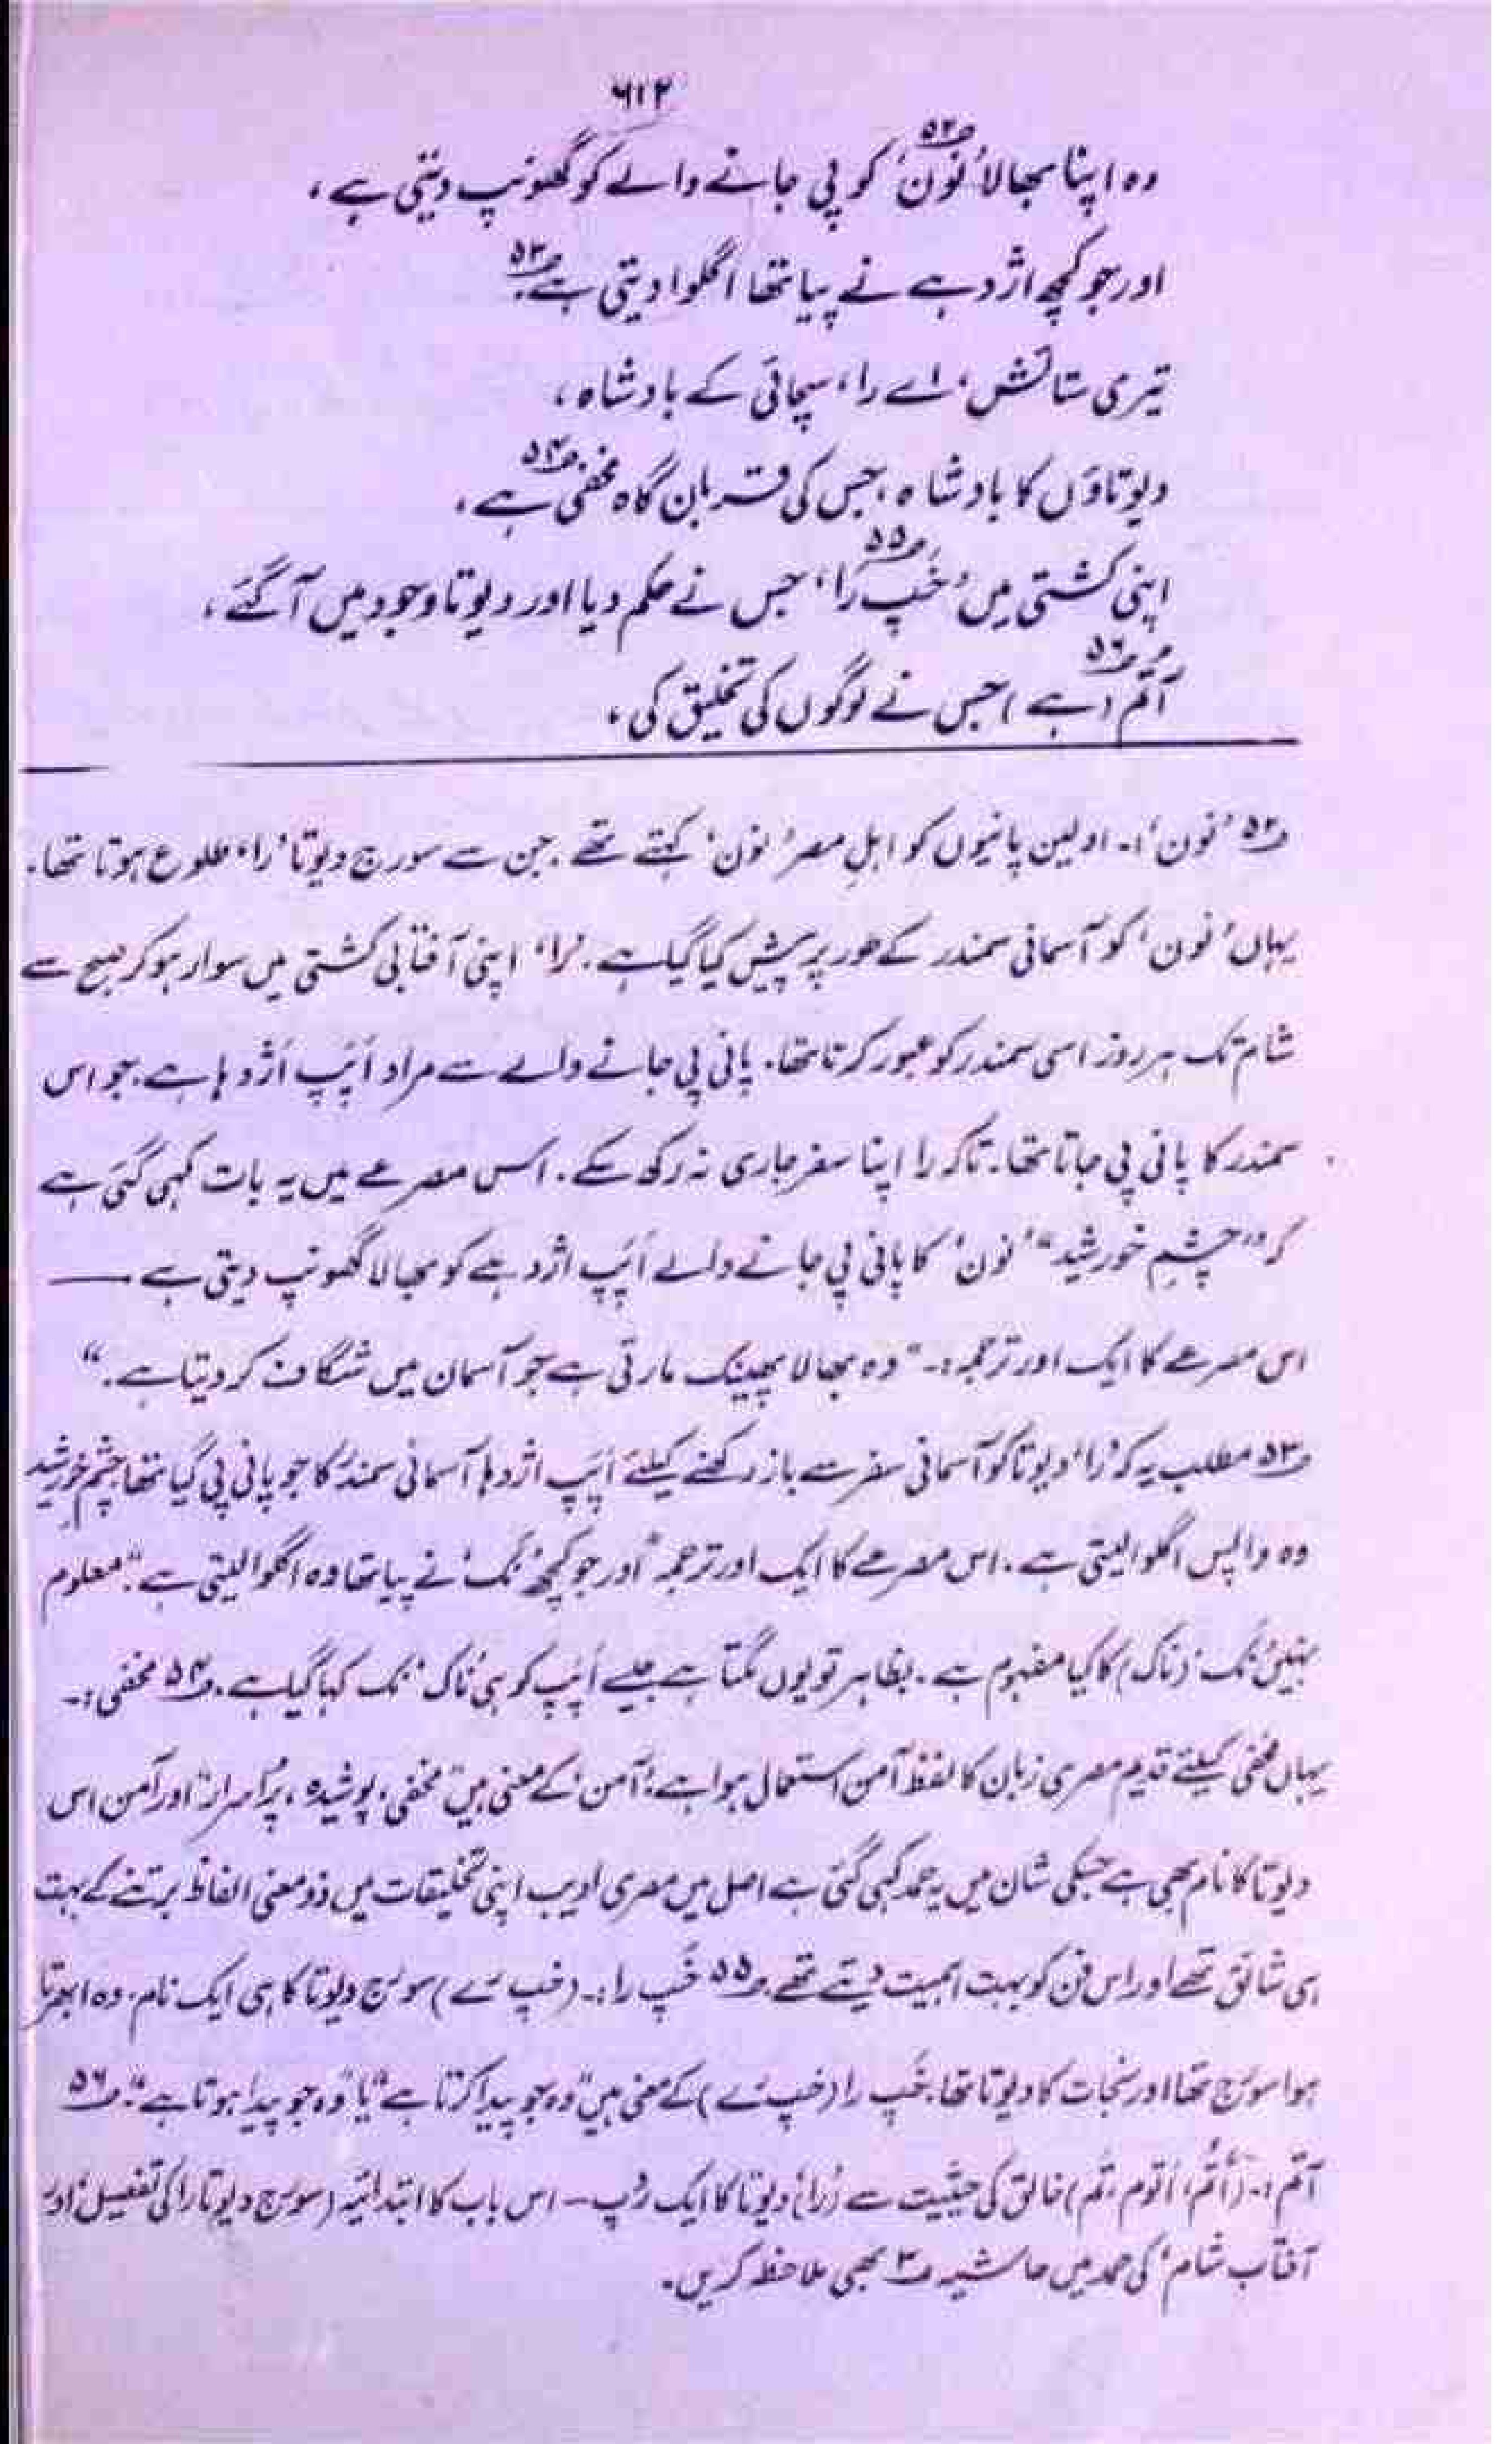 ۶۱۲
وہ اپنا بھالا ’نُون‘ ۵۲؎ کو پی جانے والے کو گھونپ دیتی ہے،
اور جو کچھ اژدہے نے پیا تھا اگلوا دیتی ہے ۵۳؎
تیری ستائش، اے را، سچائی کے بادشاہ،
دیوتاؤں کا بادشاہ، جس کی قربان گاہ مخفی ۵۴؎ ہے،
اپنی کشتی میں ’خَپ رَا‘ ۵۵؎ جس نے حکم دیا اور دیوتا وجود میں آ گئے،
آتُم ۵۶؎ (ہے) جس نے لوگوں کی تخلیق کی،
۵۲؎ ’نون‘:۔ اولین پانیوں کو اہلِ مصر ’نون‘ کہتے تھے۔ جن سے سورج دیوتا ’را‘ طلوع ہوتا تھا۔
یہاں ’نون‘ کو آسمانی سمندر کے طور پر پیش کیا گیا ہے۔ ’را‘ اپنی آفتابی کشتی میں سوار ہو کر صبح سے
شام تک ہر روز اسی سمندر کو عبور کرتا تھا۔ پانی پی جانے والے سے مراد اَپَپ اژدہا ہے۔ جو اس
سمندر کا پانی پی جاتا تھا۔ تاکہ را اپنا سفر جاری نہ رکھ سکے۔ اس مصرعے میں یہ بات کہی گئی ہے
کہ ”چشمِ خورشید“ ’نون‘ کا پانی پی جانے والے اَپَپ اژدہے کو بھالا گھونپ دیتی ہے ——
اس مصرعے کا ایک اور ترجمہ:۔ ”وہ بھالا پھینک مارتی ہے جو آسمان میں شگاف کر دیتا ہے۔“
۵۳؎ مطلب یہ کہ ’را‘ دیوتا کو آسمانی سفر سے باز رکھنے کیلئے اَپَپ اژدہا آسمانی سمندر کا جو پانی پی گیا تھا چشمِ خورشید
وہ واپس اگلوا لیتی ہے۔ اس مصرعے کا ایک اور ترجمہ ”اور جو کچھ ’نک‘ نے پیا تھا وہ اگلوا لیتی ہے“۔ معلوم
نہیں ’نک‘ (ناک) کا کیا مفہوم ہے۔ بظاہر تو یوں لگتا ہے جیسے اَپَپ کو ہی ’ناک‘ نک کہا گیا ہے۔ ۵۴؎ مخفی:۔
یہاں مخفی کیلئے قدیم مصری زبان کا لفظ آمن استعمال ہوا ہے۔ ’آمن‘ کے معنی ہیں ”مخفی، پوشیدہ، پُراسرار“ اور آمن اس
دیوتا کا نام بھی ہے جسکی شان میں یہ حمد کہی گئی ہے اصل میں مصری ادیب اپنی تخلیقات میں ذومعنی الفاظ برتنے کے بہت
ہی شائق تھے اور اس فن کو بہت اہمیت دیتے تھے۔ ۵۵؎ خَپ را:۔ (خپ رے) سورج دیوتا کا ہی ایک نام۔ وہ ابھرتا
ہوا سورج تھا اور نجات کا دیوتا تھا۔ خَپ را (خپ رے) کے معنی ہیں ”وہ جو پیدا کرتا ہے“ یا ”وہ جو پیدا ہوتا ہے“۔ ۵۶؎
آتم:۔ (اُتُم، اتوم، تُم) خالق کی حیثیت سے ’را‘ دیوتا کا ایک رُپ — اس باب کا ابتدائیہ (سورج دیوتا را کی تفصیل) اور
آفتاب شام‘ کی حمد میں حاشیہ ۳؎ بھی ملاحظہ کریں۔